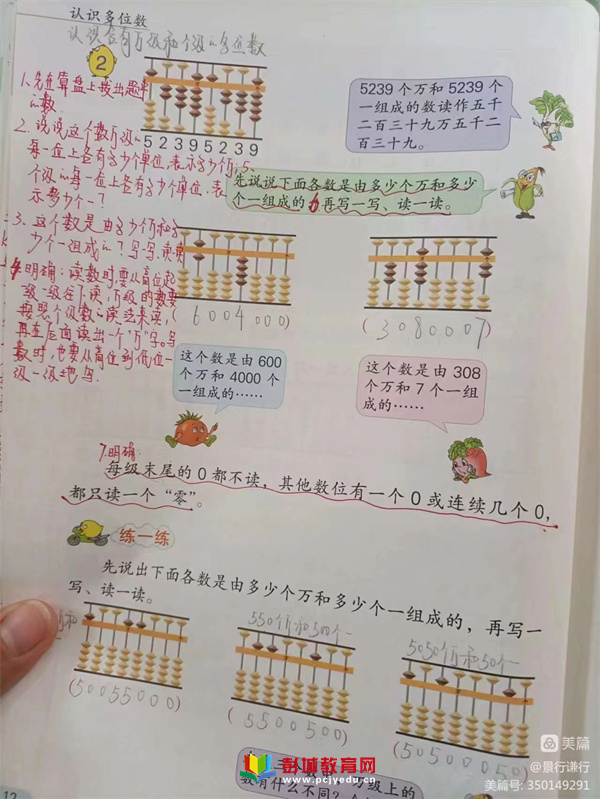 认识多位数
认识含有万级和个级的多位数
2
52395239
5239个万和5239个
一组成的数读作五千
二百三十九万五千二
百三十九。
1.先在算盘上拨出题中
的数
2.说说这个数万级的
每一位上各有多少个单位,表示多少个万,
个级的每一位上各有多少个单位,表
示多少个一?
3.这个数是由多少个万和多
少个一组成的?写一写,读一读
4.明确:读数时,要从高位起
一级一级往下读,万级的数要
按照个级数的读法来读,
再在后面读出一个"万"字。写
数时,也要从高位到低位一
级一级地写.
先说说下面各数是由多少个万和多少
个一组成的,再写一写、读一读。
(6004000)
(3080007)
这个数是由600
个万和4000个
一组成的……
这个数是由308
个万和7个一组
成的……
7.明确:
每级末尾的0都不读,其他数位有一个0或连续几个0,
都只读一个“零”。
练一练
先说出下面各数是由多少个万和多少个一组成的,再写一
写、读一读。
550个万和500个一
5050个万和50个一
(50055000)
(5500500)
(50500050)
彭城教育网
www.pcjyedu.com
数有什么不同?
12
美篇
@景行谦行
美篇号:350149291